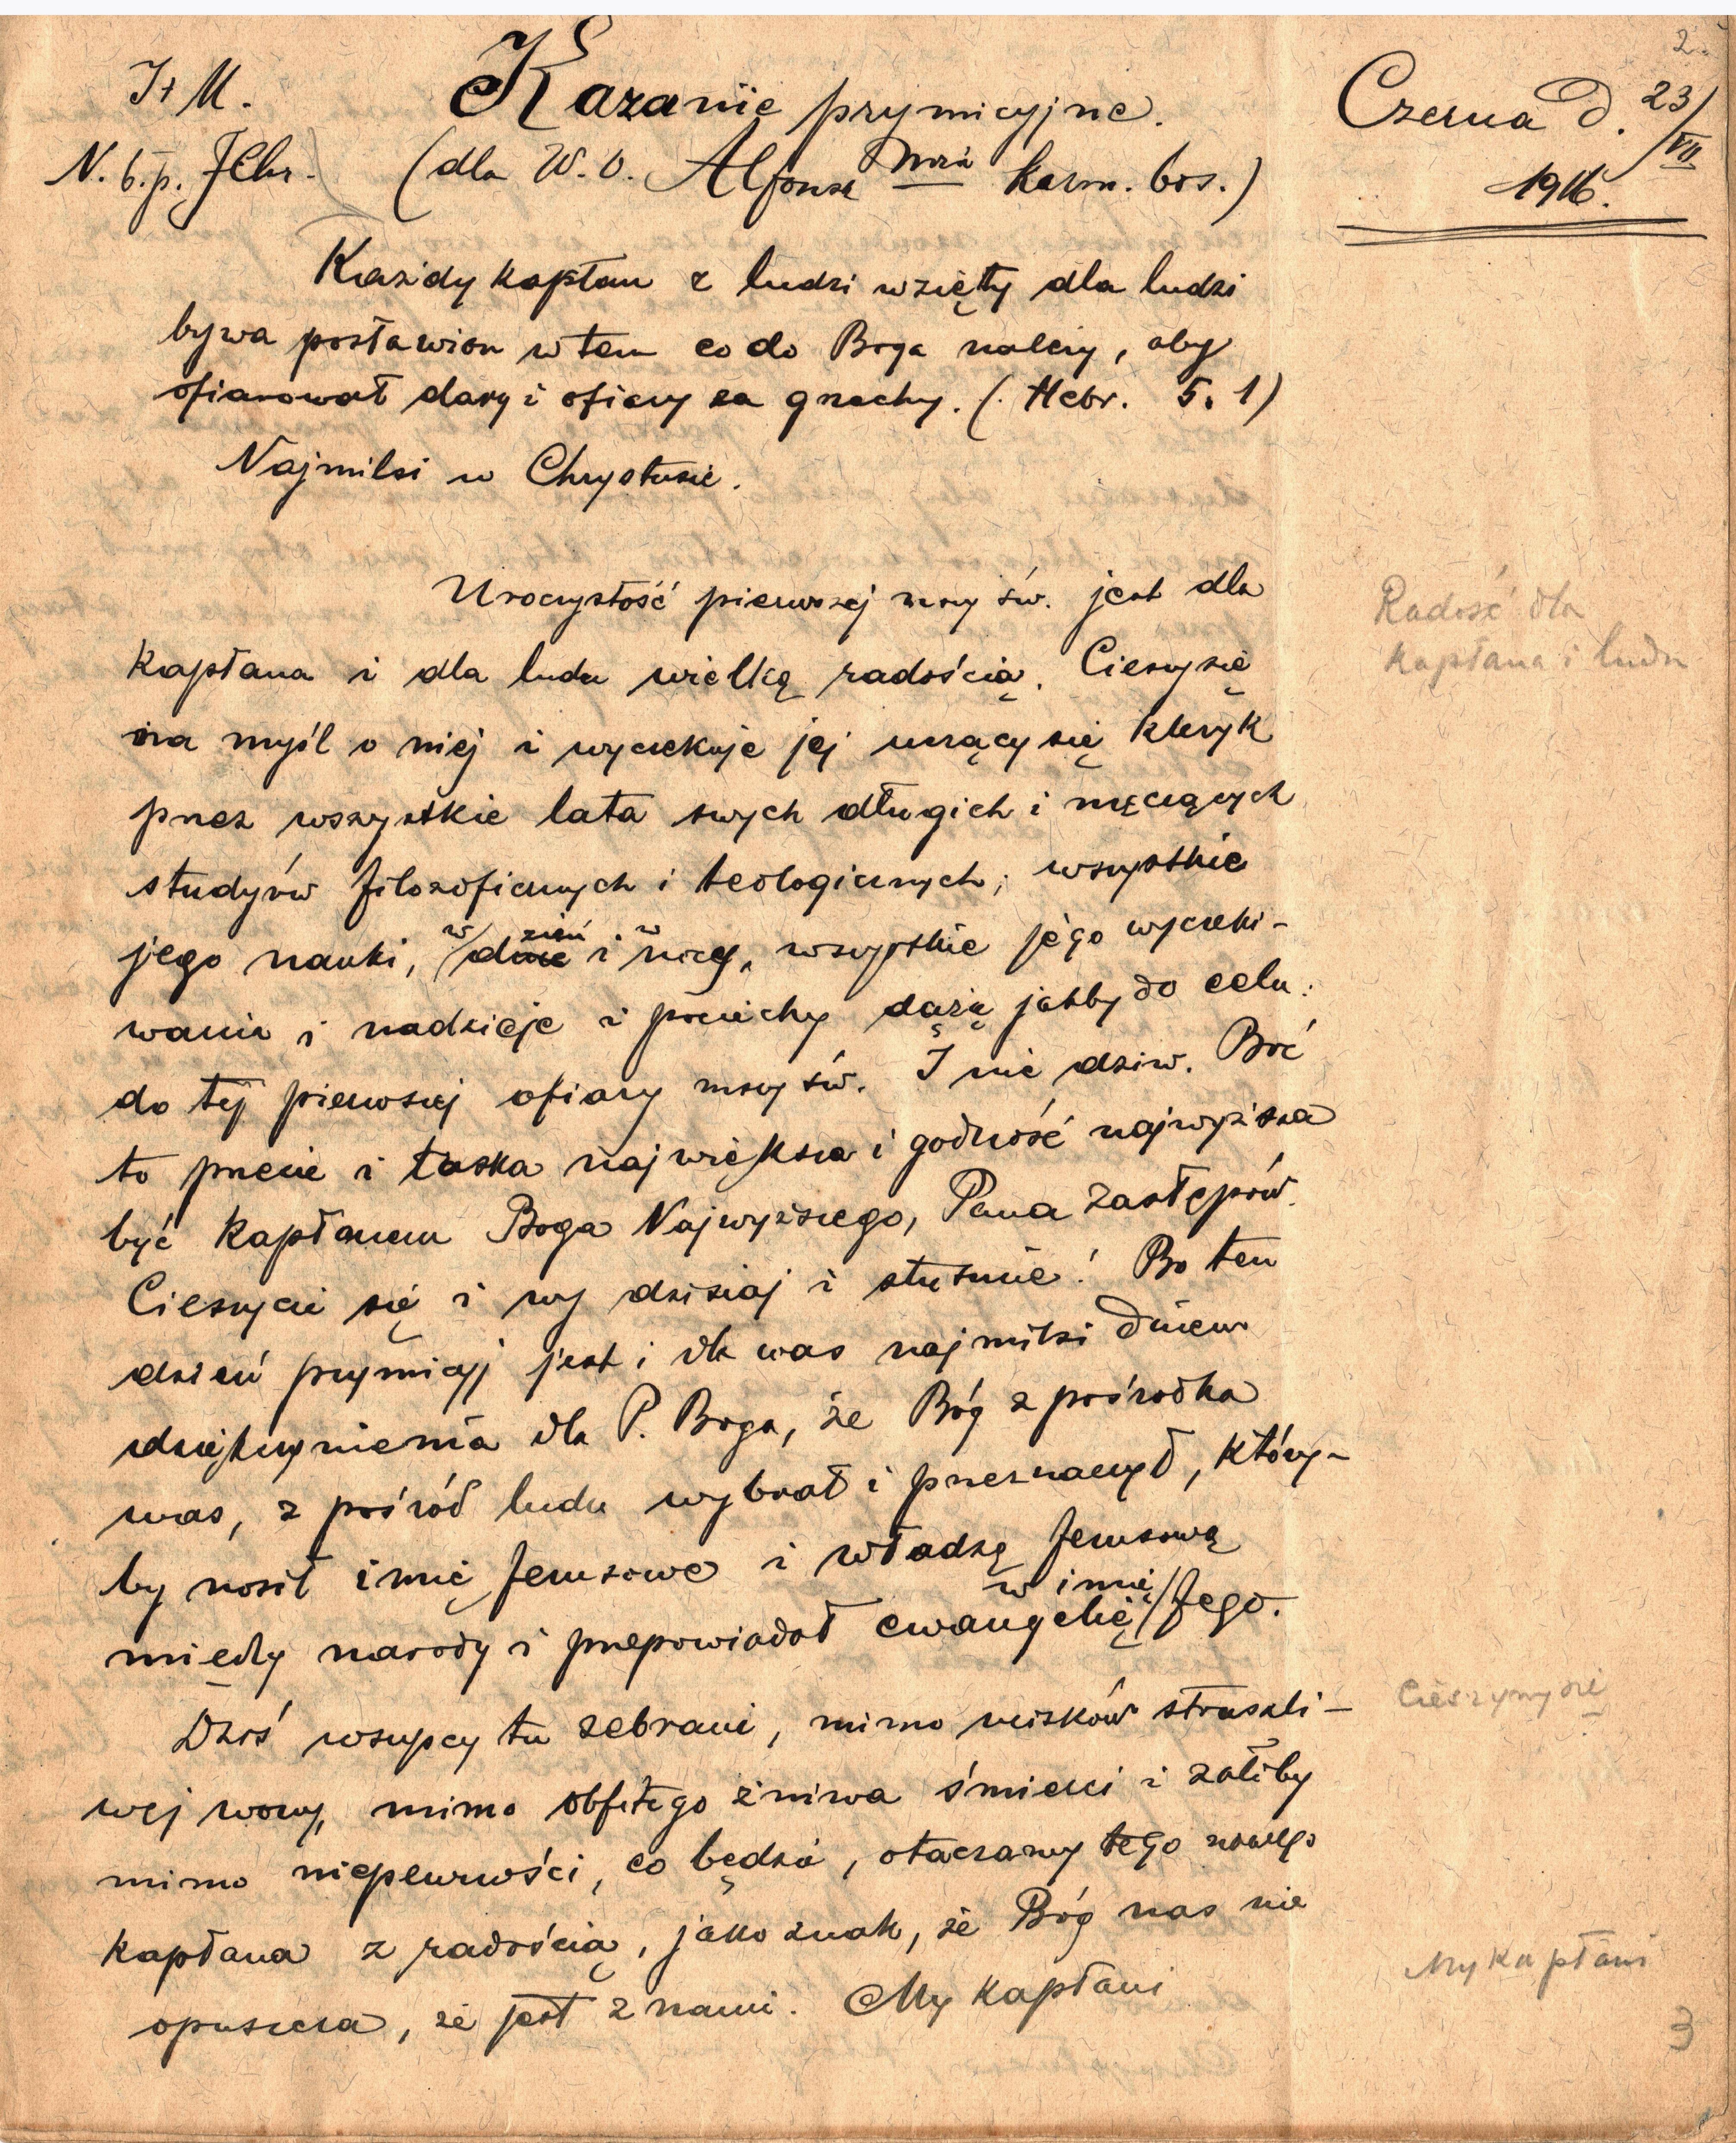 2.
J + M.
Kazanie prymicyjne.
Czerna d. 23/VII
1916.
N. b. p. JChr.
(dla W. O. Alfonsa karm. bos.)
Każdy kapłan z ludzi wzięty dla ludzi
bywa postawion w tem co do Boga należy, aby
ofiarował dary i ofiary za grzechy. (Hebr. 5. 1)
Najmilsi w Chrystusie.
Uroczystość pierwszej mszy św. jest dla
kapłana i dla ludu wielką radością. Cieszy się
Radość dla
kapłana i ludu
na myśl o niej i wyczekuje jej uczący się kleryk
przez wszystkie lata swych długich i męczących
studyów filozoficznych i teologicznych; wszystkie
jego nauki, w dzień i w nocy, wszystkie jego wyczeki-
wania i nadzieje i pociechy dążą jakby do celu:
do tej pierwszej ofiary mszy św. I nie dziw. Boć
to przecie i łaska największa i godność najwyższa
być kapłanem Boga Najwyższego, Pana Zastępów.
Cieszycie się i wy dzisiaj i słusznie! Bo ten
dzień prymicyj jest i dla was najmilsi dniem
dziękczynienia dla P. Boga, że Bóg z pośrodka
was, z pośród ludu wybrał i przeznaczył, który-
by nosił imię Jezusowe i władzę Jezusową
między narody i przepowiadał ewangelię w imię Jego.
Dziś wszyscy tu zebrani, mimo ucisków straszli-
Cieszymy się
wej wojny, mimo obfitego żniwa śmierci i żałoby
mimo niepewności, co będzie, otaczamy tego nowego
kapłana z radością, jako znak, że Bóg nas nie
opuszcza, że jest z nami. My kapłani
My kapłani
3